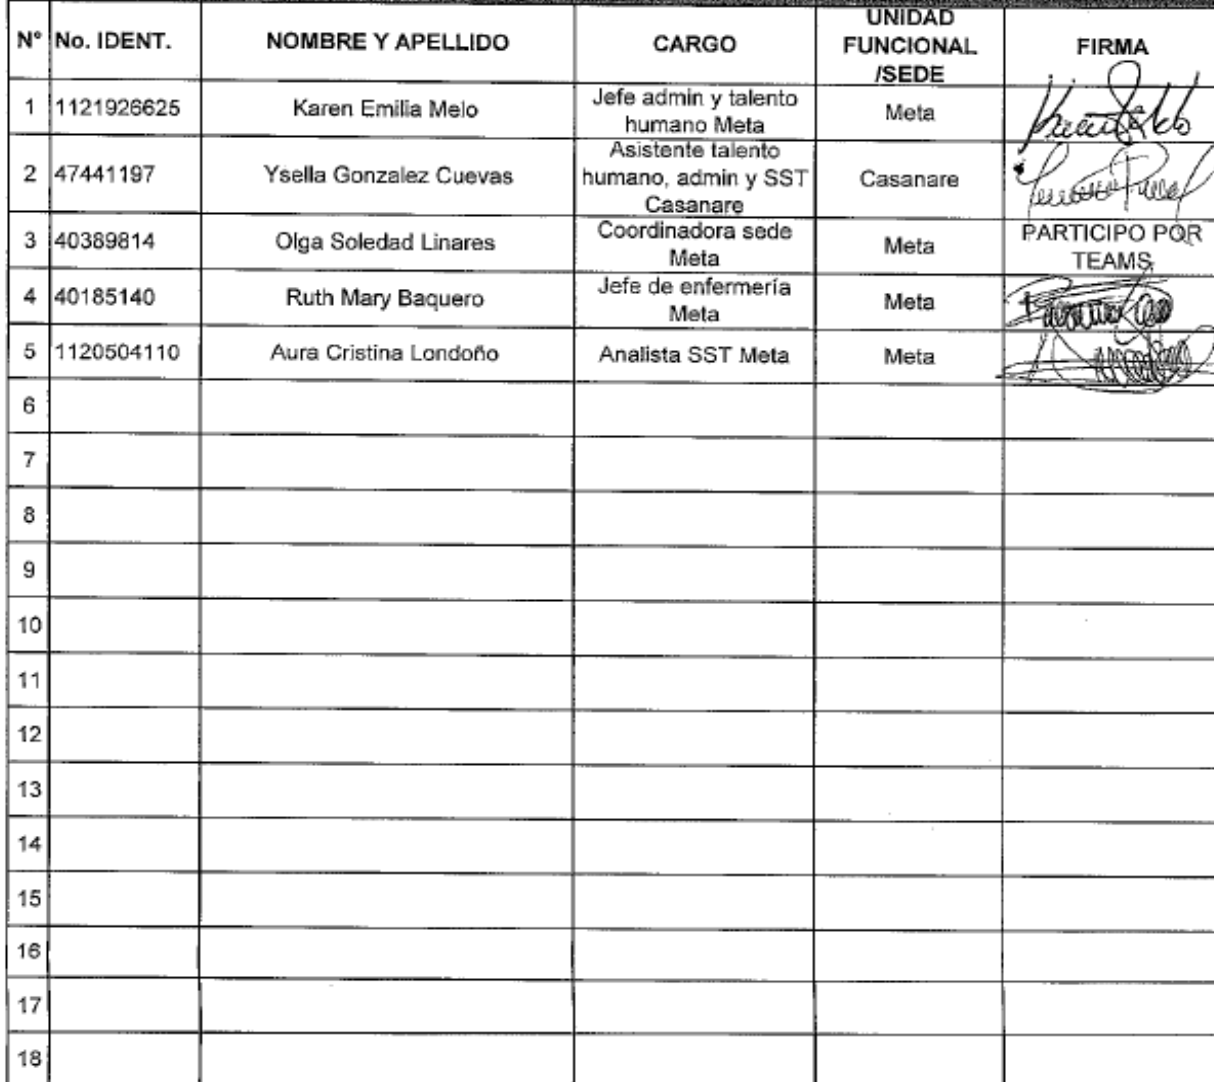 N° No. IDENT. NOMBRE Y APELLIDO CARGO UNIDAD FUNCIONAL /SEDE FIRMA
1 1121926625 Karen Emilia Melo Jefe admin y talento humano Meta Meta
2 47441197 Ysella Gonzalez Cuevas Asistente talento humano, admin y SST Casanare Casanare
3 40389814 Olga Soledad Linares Coordinadora sede Meta Meta PARTICIPO POR TEAMS
4 40185140 Ruth Mary Baquero Jefe de enfermería Meta Meta
5 1120504110 Aura Cristina Londoño Analista SST Meta Meta
6
7
8
9
10
11
12
13
14
15
16
17
18